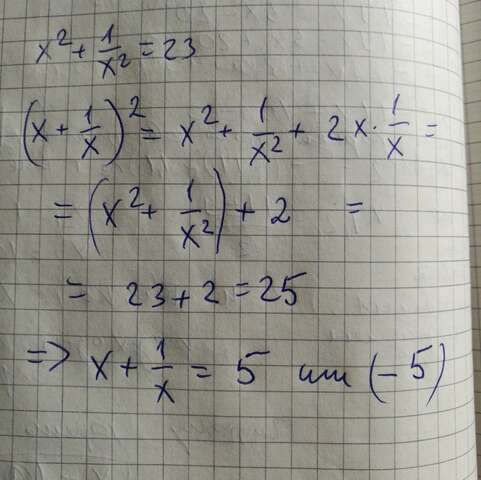 x² + 1/x² = 23
(x + 1/x)² = x² + 1/x² + 2x · 1/x =
= (x² + 1/x²) + 2 =
= 23 + 2 = 25
=> x + 1/x = 5 или (-5)